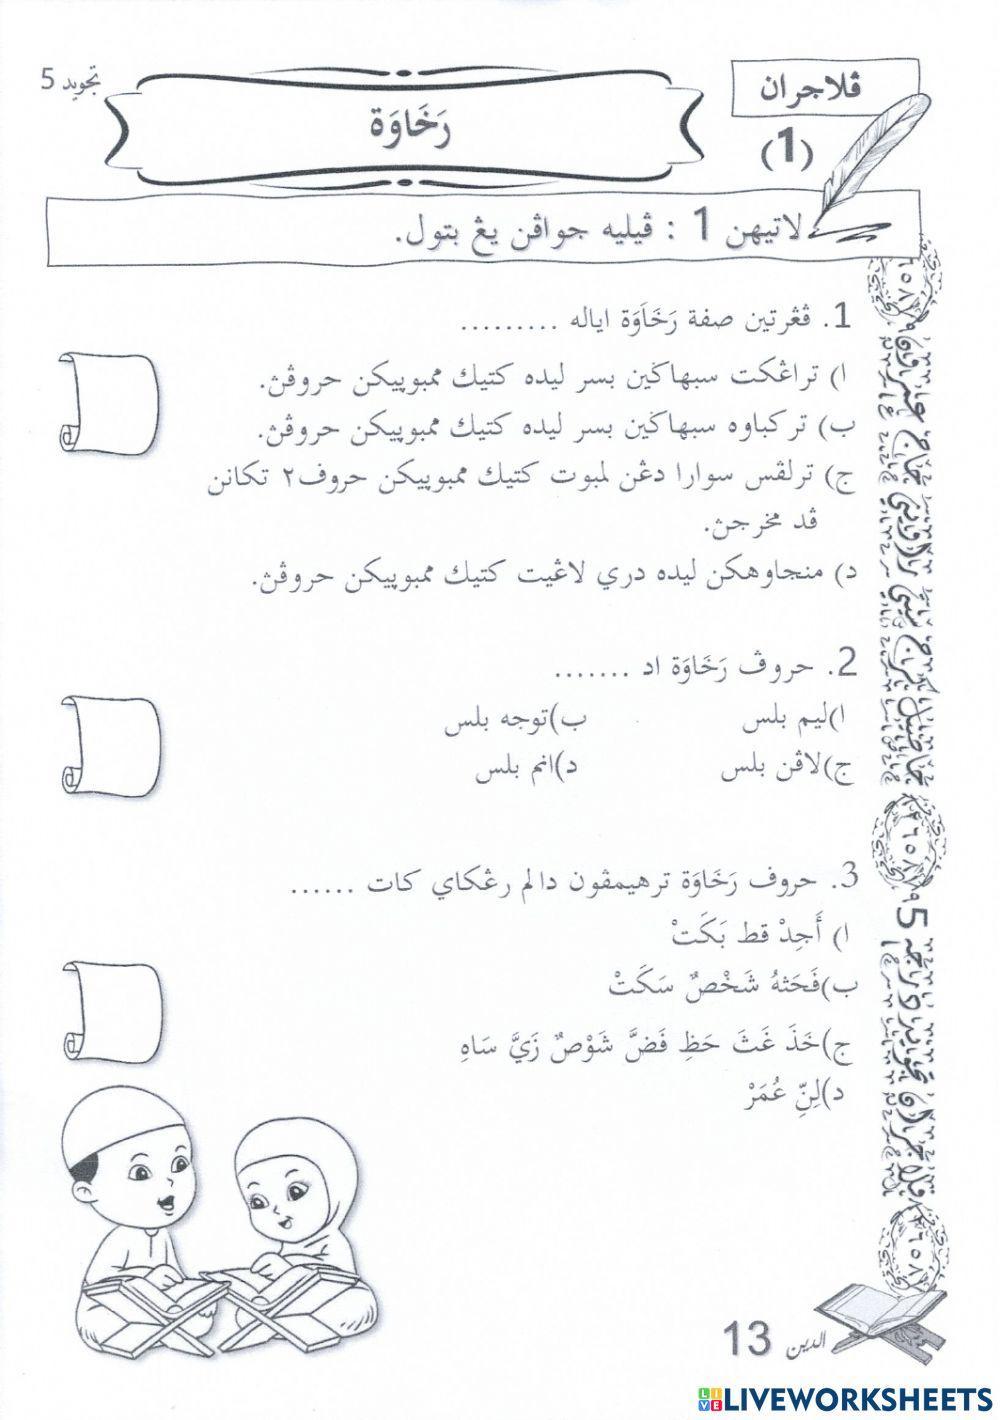 ڤلاجرن
(1)
تجويد 5
رَخَاوَة
لاتيهن 1 : ڤيليه جواڤن يڠ بتول.
1. ڤڠرتين صفة رَخَاَوَة اياله .........
ا) تراڠكت سبهاݢين بسر ليده كتيك ممبوييكن حروفڽ.
ب) تركباوه سبهاݢين بسر ليده كتيك ممبوييكن حروفڽ.
ج) ترلڤس سوارا دڠن لمبوت كتيك ممبوييكن حروف٢ تكانن
ڤد مخرجڽ.
د) منجاوهكن ليده دري لاڠيت كتيك ممبوييكن حروفڽ.
2. حروف رَخَاوَة اد .......
ا)ليم بلس
ب)توجه بلس
ج)لاڤن بلس
د)انم بلس
3. حروف رَخَاوَة ترهيمڤون دالم رڠكاي كات ......
ا) أَجِدْ قط بَكَتْ
ب)فَحَثهُ شَخْصٌ سَكَتْ
ج)خَذَ غَثَ حَظِ فَضَّ شَوْصٌ زَيَّ سَاهِ
د)لِنِّ عُمَرْ
الدين 13
LIVEWORKSHEETS